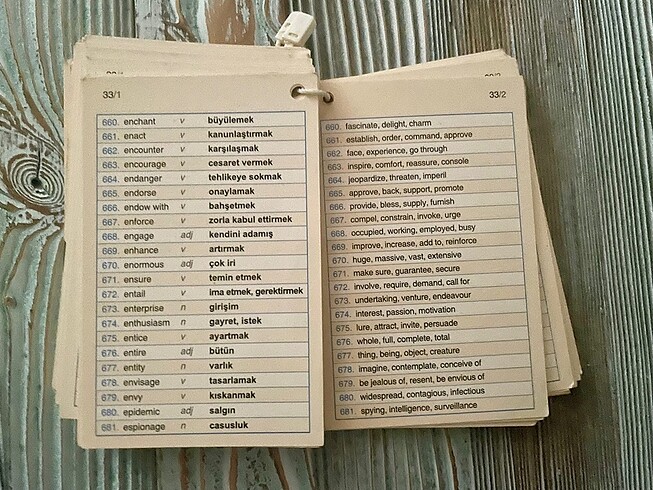 33/1
660. enchant v büyülemek
661. enact v kanunlaştırmak
662. encounter v karşılaşmak
663. encourage v cesaret vermek
664. endanger v tehlikeye sokmak
665. endorse v onaylamak
666. endow with v bahşetmek
667. enforce v zorla kabul ettirmek
668. engage adj kendini adamış
669. enhance v artırmak
670. enormous adj çok iri
671. ensure v temin etmek
672. entail v ima etmek, gerektirmek
673. enterprise n girişim
674. enthusiasm n gayret, istek
675. entice v ayartmak
676. entire adj bütün
677. entity n varlık
678. envisage v tasarlamak
679. envy v kıskanmak
680. epidemic adj salgın
681. espionage n casusluk
33/2
660. fascinate, delight, charm
661. establish, order, command, approve
662. face, experience, go through
663. inspire, comfort, reassure, console
664. jeopardize, threaten, imperil
665. approve, back, support, promote
666. provide, bless, supply, furnish
667. compel, constrain, invoke, urge
668. occupied, working, employed, busy
669. improve, increase, add to, reinforce
670. huge, massive, vast, extensive
671. make sure, guarantee, secure
672. involve, require, demand, call for
673. undertaking, venture, endeavour
674. interest, passion, motivation
675. lure, attract, invite, persuade
676. whole, full, complete, total
677. thing, being, object, creature
678. imagine, contemplate, conceive of
679. be jealous of, resent, be envious of
680. widespread, contagious, infectious
681. spying, intelligence, surveillance